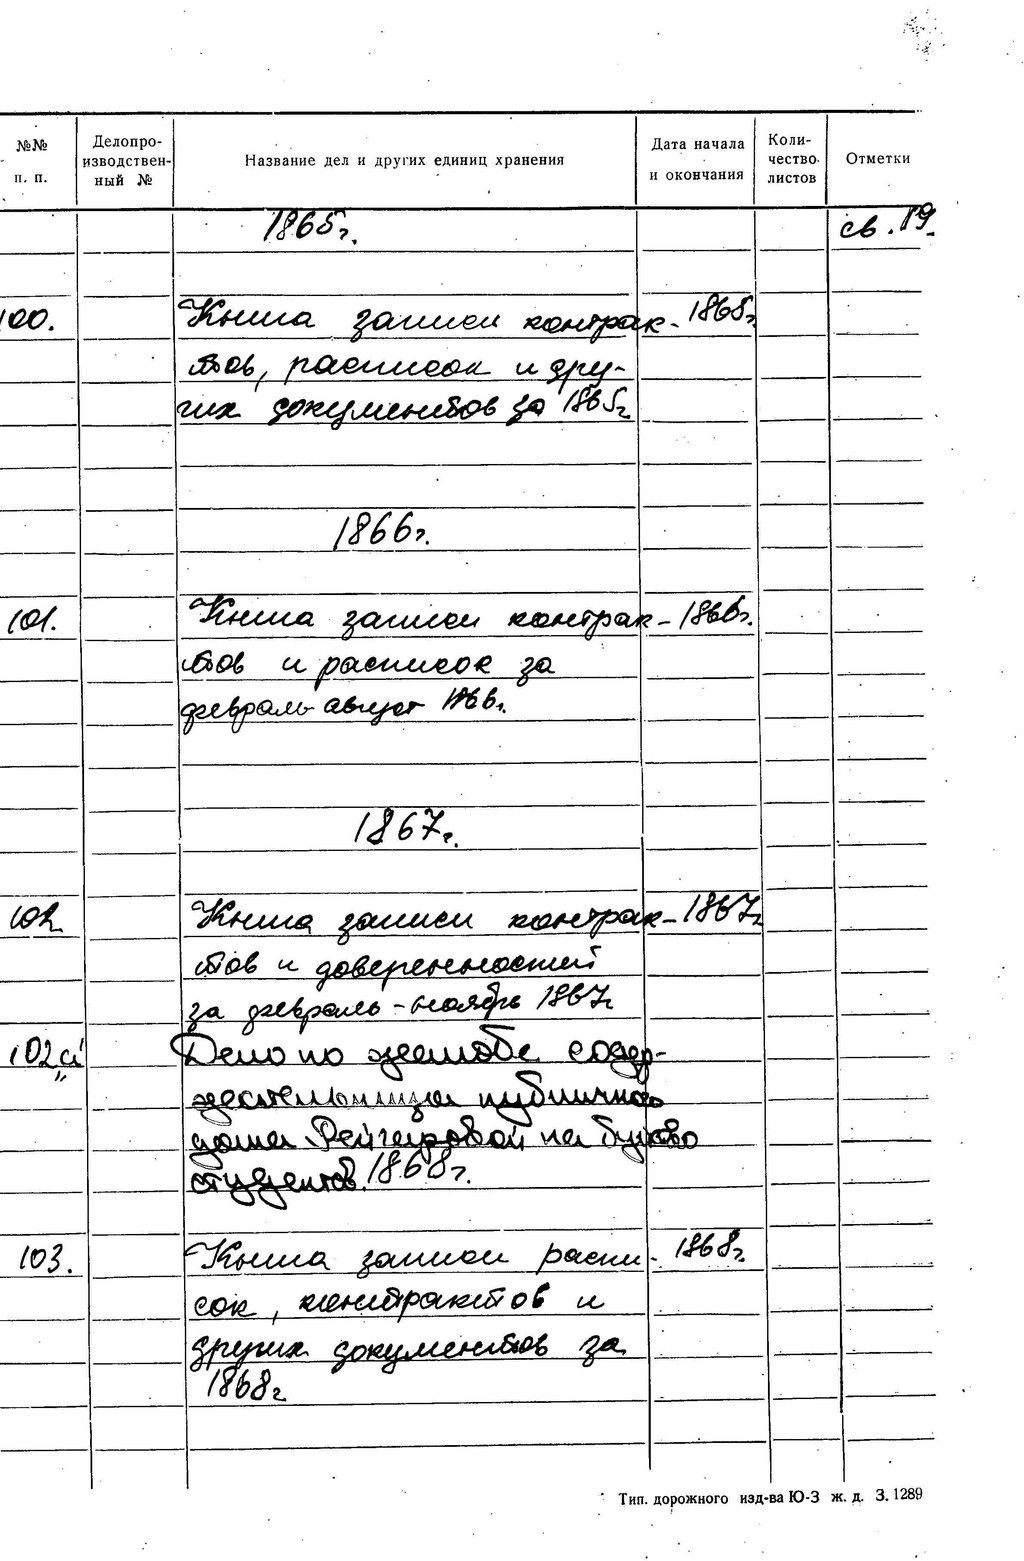 №№ п. п.
Делопроизводственный №
Название дел и других единиц хранения
Дата начала и окончания
Количество листов
Отметки
1865г.
св. 19.
100. Книга записи контрак- 1865г.
тов, расписок и дру-
гих документов за 1865г
1866г.
101. Книга записи контрак- 1866г.
тов и расписок за
февраль-август 1866г.
1867г.
102 Книга записи контрак- 1867г
тов и доверенностей
за февраль-ноябрь 1867г
102а Дело по жалобе содер-
жательницы публичного
дома на буйство
студентов. 1868г.
103. Книга записи распи- 1868г.
сок, контрактов и
других документов за
1868г
Тип. дорожного изд-ва Ю-З ж. д. З. 1289